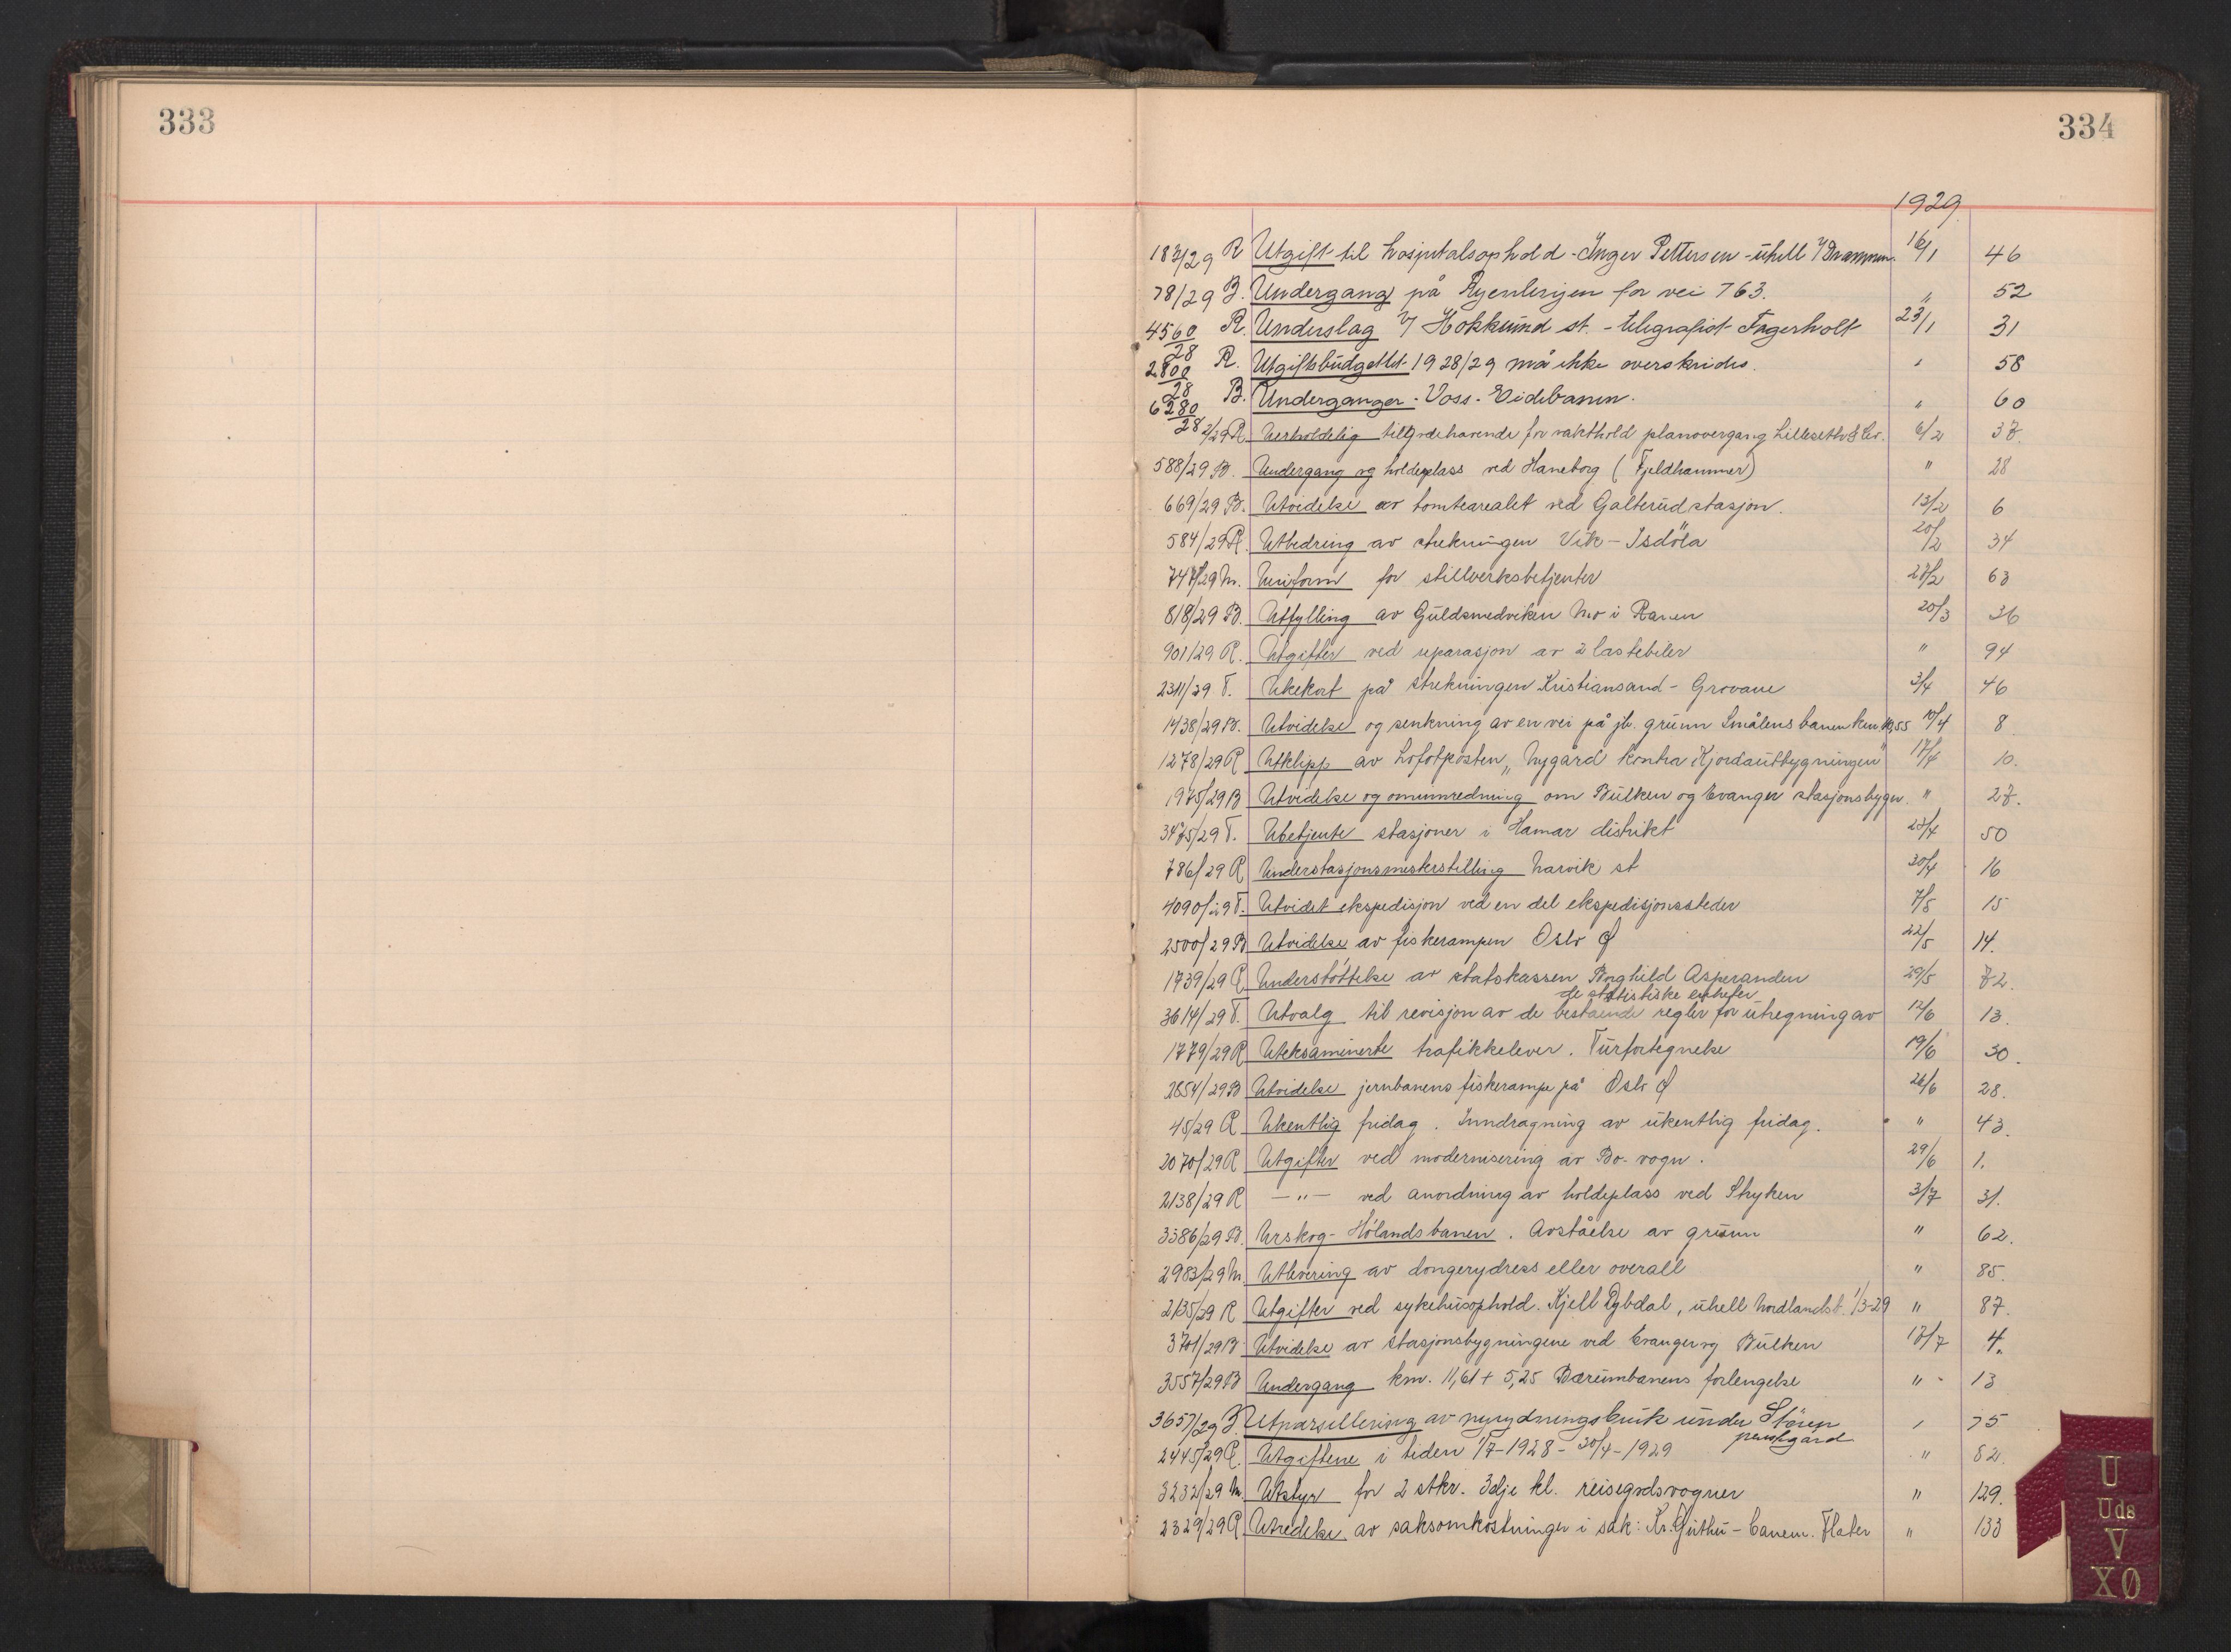 333
334
1929
187/29 R Utgift til hospitalsophold - Inger Pettersen - uhell v/ Drammen. 16/1 46
78/29 B. Undergang på Ryenlinjen for vei 763. " 52
4560/28 R. Underslag v/ Hokksund st. - telegrafist Fagerholt 23/1 31
2800/28 R. Utgiftsbudgettet 1928/29 må ikke overskrides. " 58
6280/28 B. Underganger - Voss - Eidebanen. " 60
2/29 R Uerholdelig tilgodehavende for vakthold planovergang 6/2 37.
588/29 B. Undergang og holdeplass ved Haneborg (Fjeldhammer) " 28
669/29 B. Utvidelse av tomtearealet ved Galterud stasjon. 13/2 6
584/29 R. Utbedring av strekningen Vik - Isdöla 20/2 34
747/29 M. Uniform for stillverksbetjenter 27/2 63
818/29 B. Utfylling av Guldsmedviken Mo i Ranen 20/3 36
901/29 R. Utgifter ved reparasjon av 2 lastebiler " 94
2311/29 T. Ukekort på strekningen Kristiansand - Grovane 3/4 46
1438/29 B. Utvidelse og senkning av en vei på jb. grunn Smålensbanen km 10/4 8
1278/29 R Utklipp av Lofotposten „Nygård kontra Kjordautbygningen" 17/4 10.
1975/29 B Utvidelse og ominnredning om Bulken og Evanger stasjonsbygn. " 27.
3475/29 T. Ubetjente stasjoner i Hamar distrikt 23/4 50
786/29 R Understasjonsmesterstilling Narvik st 30/4 16
4090/29 T. Utvidet ekspedisjon ved en del ekspedisjonssteder 7/5 15
2500/29 B Utvidelse av fiskerampen Oslo Ø 22/5 14.
1739/29 R Understöttelse av statskassen Borghild Asperanden 29/5 72.
de statistiske enheter
3614/29 T. Utvalg til revisjon av de bestaende regler for utregning av 12/6 13.
1779/29 R Uteksaminerte trafikkelever. Turfortegnelse 19/6 30.
2854/29 B Utvidelse jernbanens fiskerampe på Oslo Ø 26/6 28.
45/29 R Ukentlig fridag. Inndragning av ukentlig fridag. " 43.
2070/29 R Utgifter ved modernisering av Bo-vogn. 29/6 1.
2138/29 R — " — ved anordning av holdeplass ved Skyken 3/7 31.
3386/29 B. Urskog-Hölandsbanen. Avståelse av grunn " 62.
2983/29 M. Utlevering av dongerydress eller overall " 85.
2135/29 R Utgifter ved sykehusophold. Kjell Dybdal, uhell Nordlandsb. 1/3-29 " 87.
3701/29 B Utvidelse av stasjonsbygningene ved Evanger og Bulken 17/7 4.
3557/29 B Undergang km. 11,61 + 5,25 Bærumbanens forlengelse " 13
3657/29 B. Utparsellering av nyrydningsbruk under Stören " 75
prestegård
2445/29 R. Utgiftene i tiden 1/7-1928 - 30/4-1929 " 82.
3232/29 M. Utstyr for 2 stkr. 3dje kl. reisegodsvogner " 129.
2329/29 R Utredelse av saksomkostninger i sak: Kr. Guthu - banem. Flater " 133
U
Uds
V
XØ